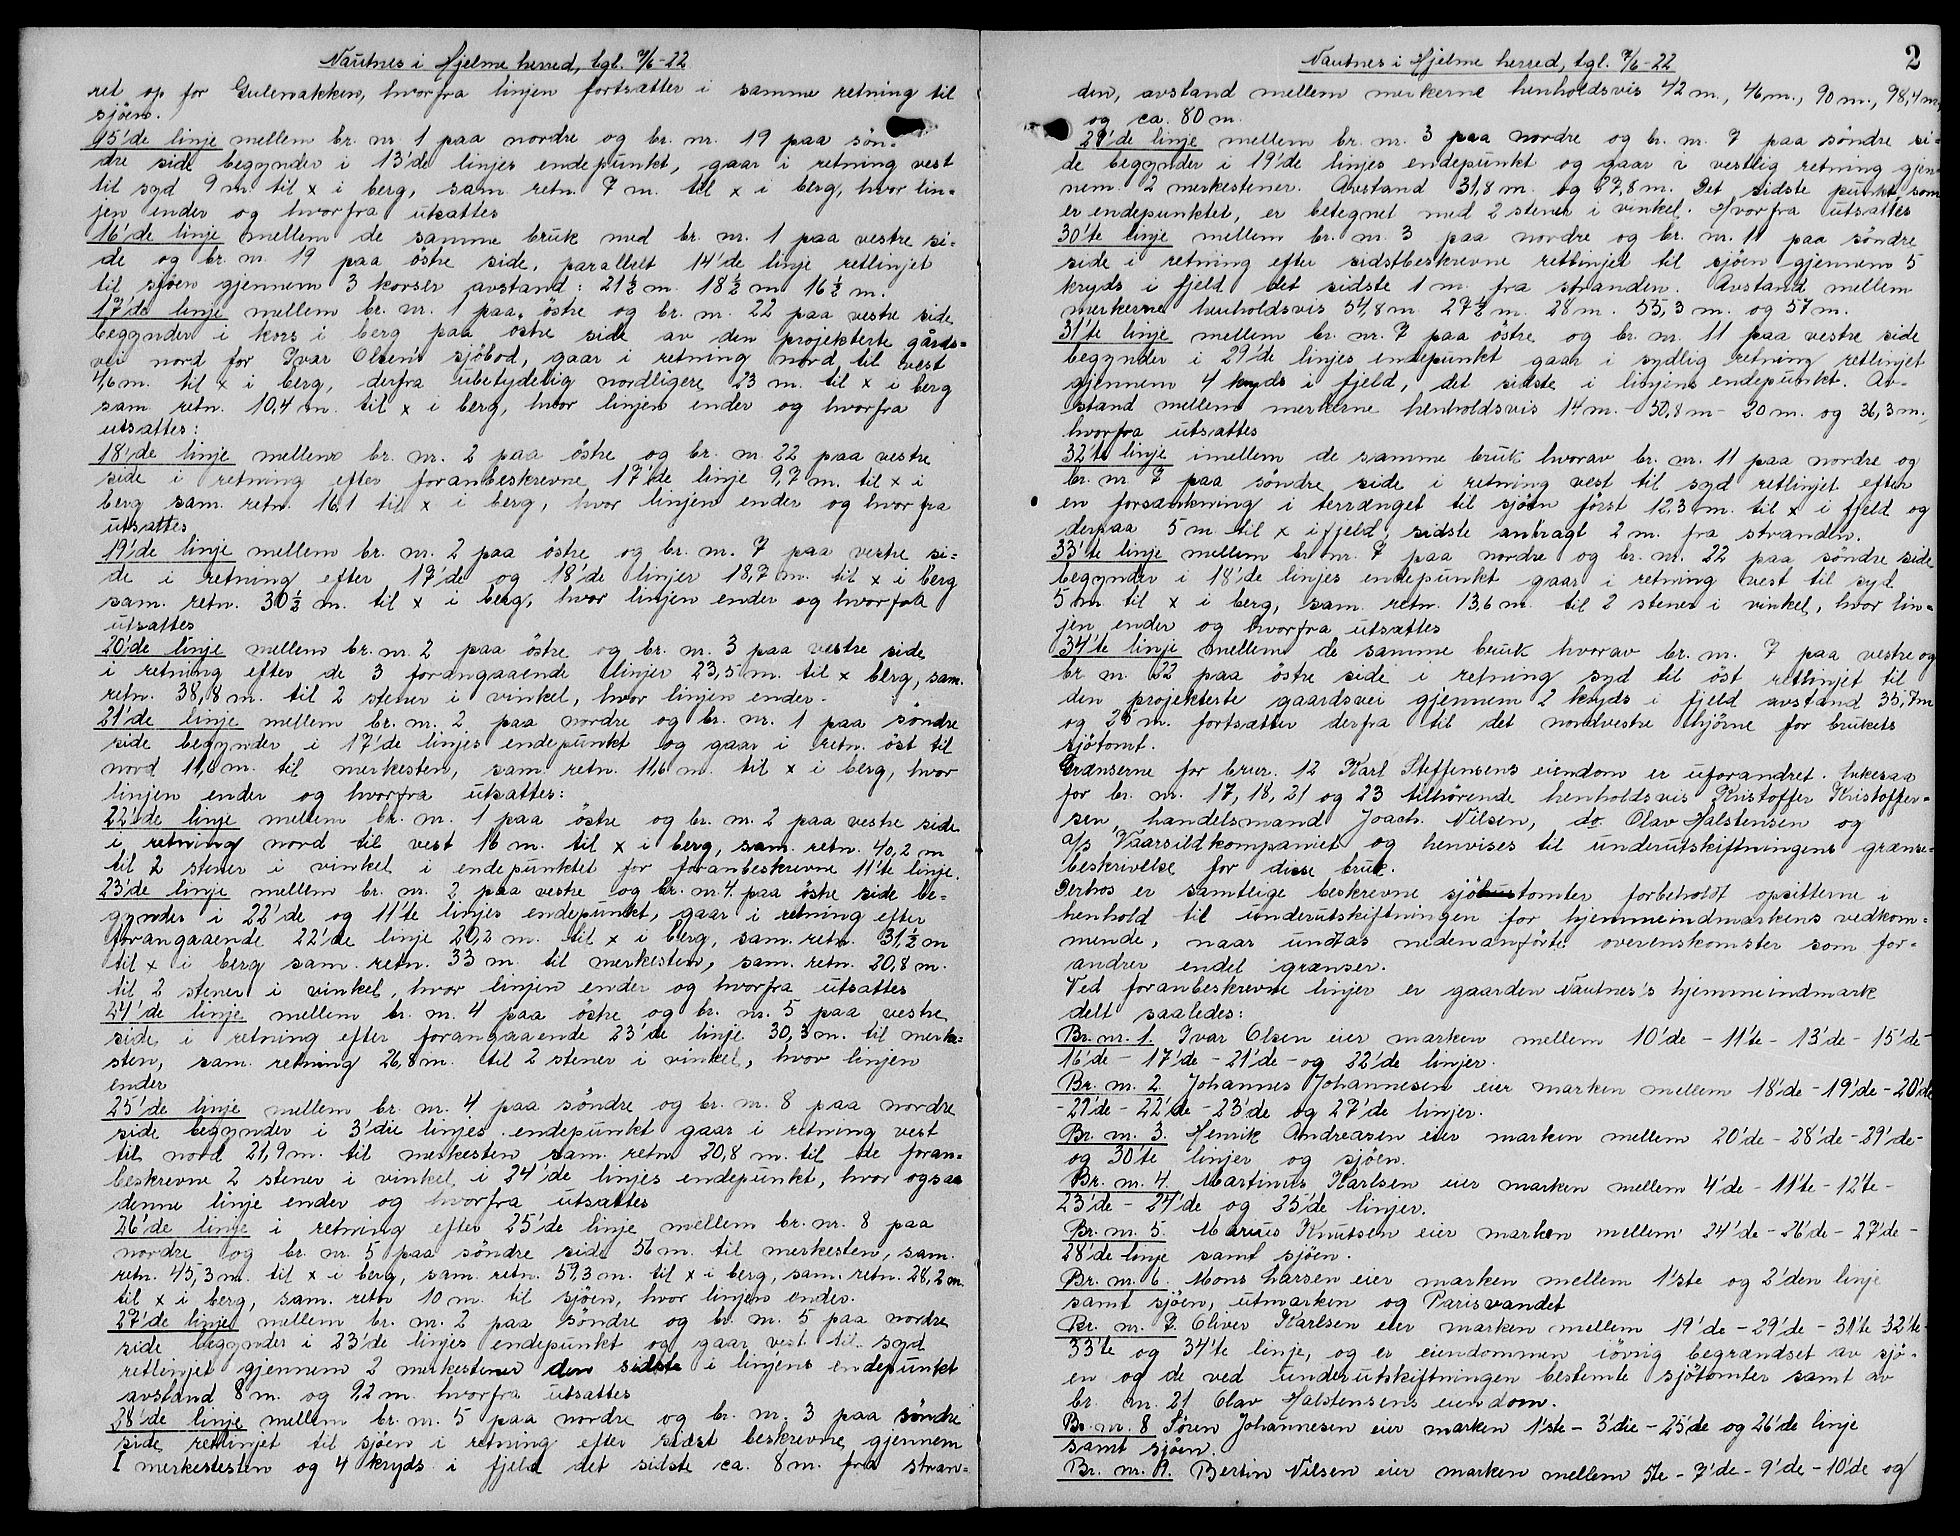 Nautnes i Hjelme herred, tgl. 7/6-22
ret op for Gulenakken, hvorfra linjen fortsætter i samme retning til
sjøen.
15'de linje mellem br. nr. 1 paa nordre og br. nr. 19 paa søn-
dre side begynder i 13'de linjes endepunkt, gaar i retning vest
til syd 9 m til x i berg, sam. retn. 7 m. til x i berg, hvor lin-
jen ender og hvorfra utsættes
16'de linje mellem de samme bruk med br. nr. 1 paa vestre si-
de og br. nr. 19 paa østre side, parallelt 14'de linje retlinjet
til sjøen gjennem 3 korser avstand: 21½ m. 18½ m 16½ m.
17'de linje mellem br. nr. 1 paa østre og br. nr. 22 paa vestre side
begynder i kors i berg paa østre side av den projekterte gårds-
vei nord for Ivar Olsen's sjøbod, gaar i retning nord til vest
46 m. til x i berg, derfra ubetydelig nordligere 23 m. til x i berg
sam. retn. 10,4 m. til x i berg, hvor linjen ender og hvorfra
utsættes:
18'de linje mellem br. nr. 2 paa østre og br. nr 22 paa vestre
side i retning efter foranbeskrevne 17'de linje 9,7 m. til x i
berg sam. retn. 16,1 til x i berg, hvor linjen ender og hvorfra
utsættes
19'de linje mellem br. nr. 2 paa østre og br. nr. 7 paa vestre si-
de i retning efter 17'de og 18'de linjer 18,7 m. til x i berg
sam. retn. 30½ m. til x i berg, hvor linjen ender og hvorfra
utsættes
20'de linje mellem br. nr. 2 paa østre og br. nr. 3 paa vestre side
i retning efter de 3 forangaaende linjer 23,5 m. til x berg, sam.
retn. 38,8 m. til 2 stener i vinkel, hvor linjen ender.
21'de linje mellem br. nr. 2 paa nordre og br. nr. 1 paa søndre
side begynder i 17'de linjes endepunkt og gaar i retn. øst til
nord 11,6 m. til merkesten, sam. retn. 11,6 m. til x i berg, hvor
linjen ender og hvorfra utsættes:
22'de linje mellem br. nr. 1 paa østre og br. nr. 2 paa vestre side
i retning nord til vest 16 m. til x i berg, sam. retn. 40,2 m
til 2 stener i vinkel i endepunktet for foranbeskrevne 11'te linje.
23'de linje mellem br. nr. 2 paa vestre og br. nr. 4. paa østre side be-
gynder i 22'de og 11'te linjes endepunkt, gaar i retning efter
forangaaende 22'de linje 29,2 m. til x i berg, sam. retn. 31½ m
til x i berg sam. retn. 33 m. til merkesten, sam. retn. 20,8 m.
til 2 stener i vinkel, hvor linjen ender og hvorfra utsættes
24'de linje mellem br. nr. 4 paa østre og br. nr. 5 paa vestre
side i retning efter forangaaende 23'de linje 30,3 m. til merke-
sten, sam. retning 26,8 m. til 2 stener i vinkel, hvor linjen
ender
25'de linje mellem br. nr. 4 paa søndre og br. nr. 8 paa nordre
side begynder i 3'die linjes endepunkt gaar i retning vest
til nord 21,9 m. til merkesten sam. retn 20,8 m. til de foran-
beskrevne 2 stener i vinkel i 24'de linjes endepunkt, hvor ogsaa
denne linje ender og hvorfra utsættes
26'de linje i retning efter 25'de linje mellem br. nr. 8 paa
nordre og br. nr. 5 paa søndre side 56 m. til merkesten, sam.
retn. 45,3 m. til x i berg, sam. retn. 59,3 m. til x i berg, sam. retn. 28,2 m.
til x i berg, sam. retn 10 m. til sjøen, hvor linjen ender.
27'de linje mellem br. nr. 2 paa søndre og br. nr. 5 paa nordre
side begynder i 23'de linjes endepunkt og gaar vest til syd
retlinjet gjennem 2 merkestener den sidste i linjens endepunkt
avstand 8 m. og 92 m. hvorfra utsættes
28'de linje mellem br. nr. 5 paa nordre og br. nr. 3 paa søndre
side retlinjet til sjøen i retning efter sidst beskrevne gjennem
1 merkestesten og 4 kryds i fjeld det sidste ca. 8 m. fra stran-
Nautnes i Hjelme herred, tgl. 7/6-22
2
den, avstand mellem merkerne henholdsvis 42 m., 46 m., 90 m., 98,4 m,
og ca. 80 m.
29'de linje mellem br. nr. 3 paa nordre og br. nr. 7 paa søndre si-
de begynder i 19'de linjes endepunkt og gaar i vestlig retning gjen-
nem 2 merkestener. Avstand 31,8 m. og 87,8 m. Det sidste punkt som
er endepunktet, er betegnet med 2 stener i vinkel. Hvorfra utsættes
30'te linje mellem br. nr. 3 paa nordre og br. nr. 11 paa søndre
side i retning efter sidstbeskrevne retlinjet til sjøen gjennem 5
kryds i fjeld det sidste 1 m. fra stranden. Avstand mellem
merkerne henholdsvis 54,8 m 27½ m. 28 m. 55,3 m. og 57 m.
31'te linje mellem br. nr. 7 paa østre og br. nr. 11 paa vestre side
begynder i 29'de linjes endepunkt gaar i sydlig retning retlinjet
gjennem 4 kryds i fjeld, det sidste i linjens endepunkt. Av-
stand mellem merkerne henholdsvis 14 m. - 50,8 m - 20 m. og 36,3 m.,
hvorfra utsættes
32'te linje imellem de samme bruk hvorav br. nr. 11 paa nordre og
br. nr 7 paa søndre side i retning vest til syd retlinjet efter
en forsænkning i terrænget til sjøen først 12,3 m. til x i fjeld og
derpaa 5 m til x i fjeld, sidste anbragt 2 m. fra stranden.
33'te linje mellem br nr. 7 paa nordre og br. nr. 22 paa søndre side
begynder i 18'de linjes endepunkt gaar i retning vest til syd
5 m til x i berg, sam. retn. 13,6 m. til 2 stener i vinkel, hvor lin-
jen ender og hvorfra utsættes
34'te linje mellem de samme bruk hvorav br. nr. 7 paa vestre og
br nr 22 paa østre side i retning syd til øst retlinjet til
den projekterte gaardsvei gjennem 2 kryds i fjeld avstand 35,7 m
og 28 m. fortsætter derfra til det nordvestre hjørne for brukets
sjøtomt.
Grænserne for br.nr. 12 Karl Steffensens eiendom er uforandret. Likesaa
for br. nr. 17, 18, 21 og 23 tilhørende henholdsvis Kristoffer Kristoffer-
sen, handelsmand Joach. Nilsen, do. Olav Halstensen og
a/s "Vaarsildkompaniet og henvises til underutskiftningens grænse-
beskrivelse for disse bruk.
Derhos er samtlige beskrevne sjøtomter forbeholdt opsitterne i
henhold til underutskiftningen for hjemmeindmarkens vedkom-
mende, naar undtas nedenanførte overenskomster som for-
andrer endel grænser.
Ved foranbeskrevne linjer er gaarden Nautnes's hjemmeindmark
delt saaledes:
Br. nr. 1. Ivar Olsen eier marken mellem 10'de - 11'te - 13'de - 15'de -
16'de - 17'de - 21'de - og 22'de linjer.
Br. nr. 2. Johannes Johannesen eier marken mellem 18'de - 19'de - 20'de
- 21'de - 22'de - 23'de og 27'de linjer.
Br. nr. 3. Henrik Andreasen eier marken mellem 20'de - 28'de - 29'de -
og 30'te linjer og sjøen.
Br. nr. 4. Martinus Karlsen eier marken mellem 4'de - 11'te - 12'te -
23'de - 24'de og 25'de linjer.
Br. nr. 5. Marius Knutsen eier marken mellem 24'de - 26'de - 27'de -
28'de linje samt sjøen.
Br. nr. 6. Mons Larsen eier marken mellem 1'ste og 2'den linje
samt sjøen, utmarken og Parisvandet
Br. nr. 7. Oliver Karlsen eier marken mellem 19'de - 29'de - 31'te 32'te -
33'te og 34'te linje, og er eiendommen iøvrig begrændset av sjø-
en og de ved underutskiftningen bestemte sjøtomter samt av
br. nr. 21 Olav Halstensens eiendom.
Br. nr. 8 Søren Johannesen eier marken 1'ste - 3'die - 25'de og 26'de linje
samt sjøen.
Br. nr. 9. Bertin Nilsen eier marken mellem 5te - 7'de - 9'de - 10'de og